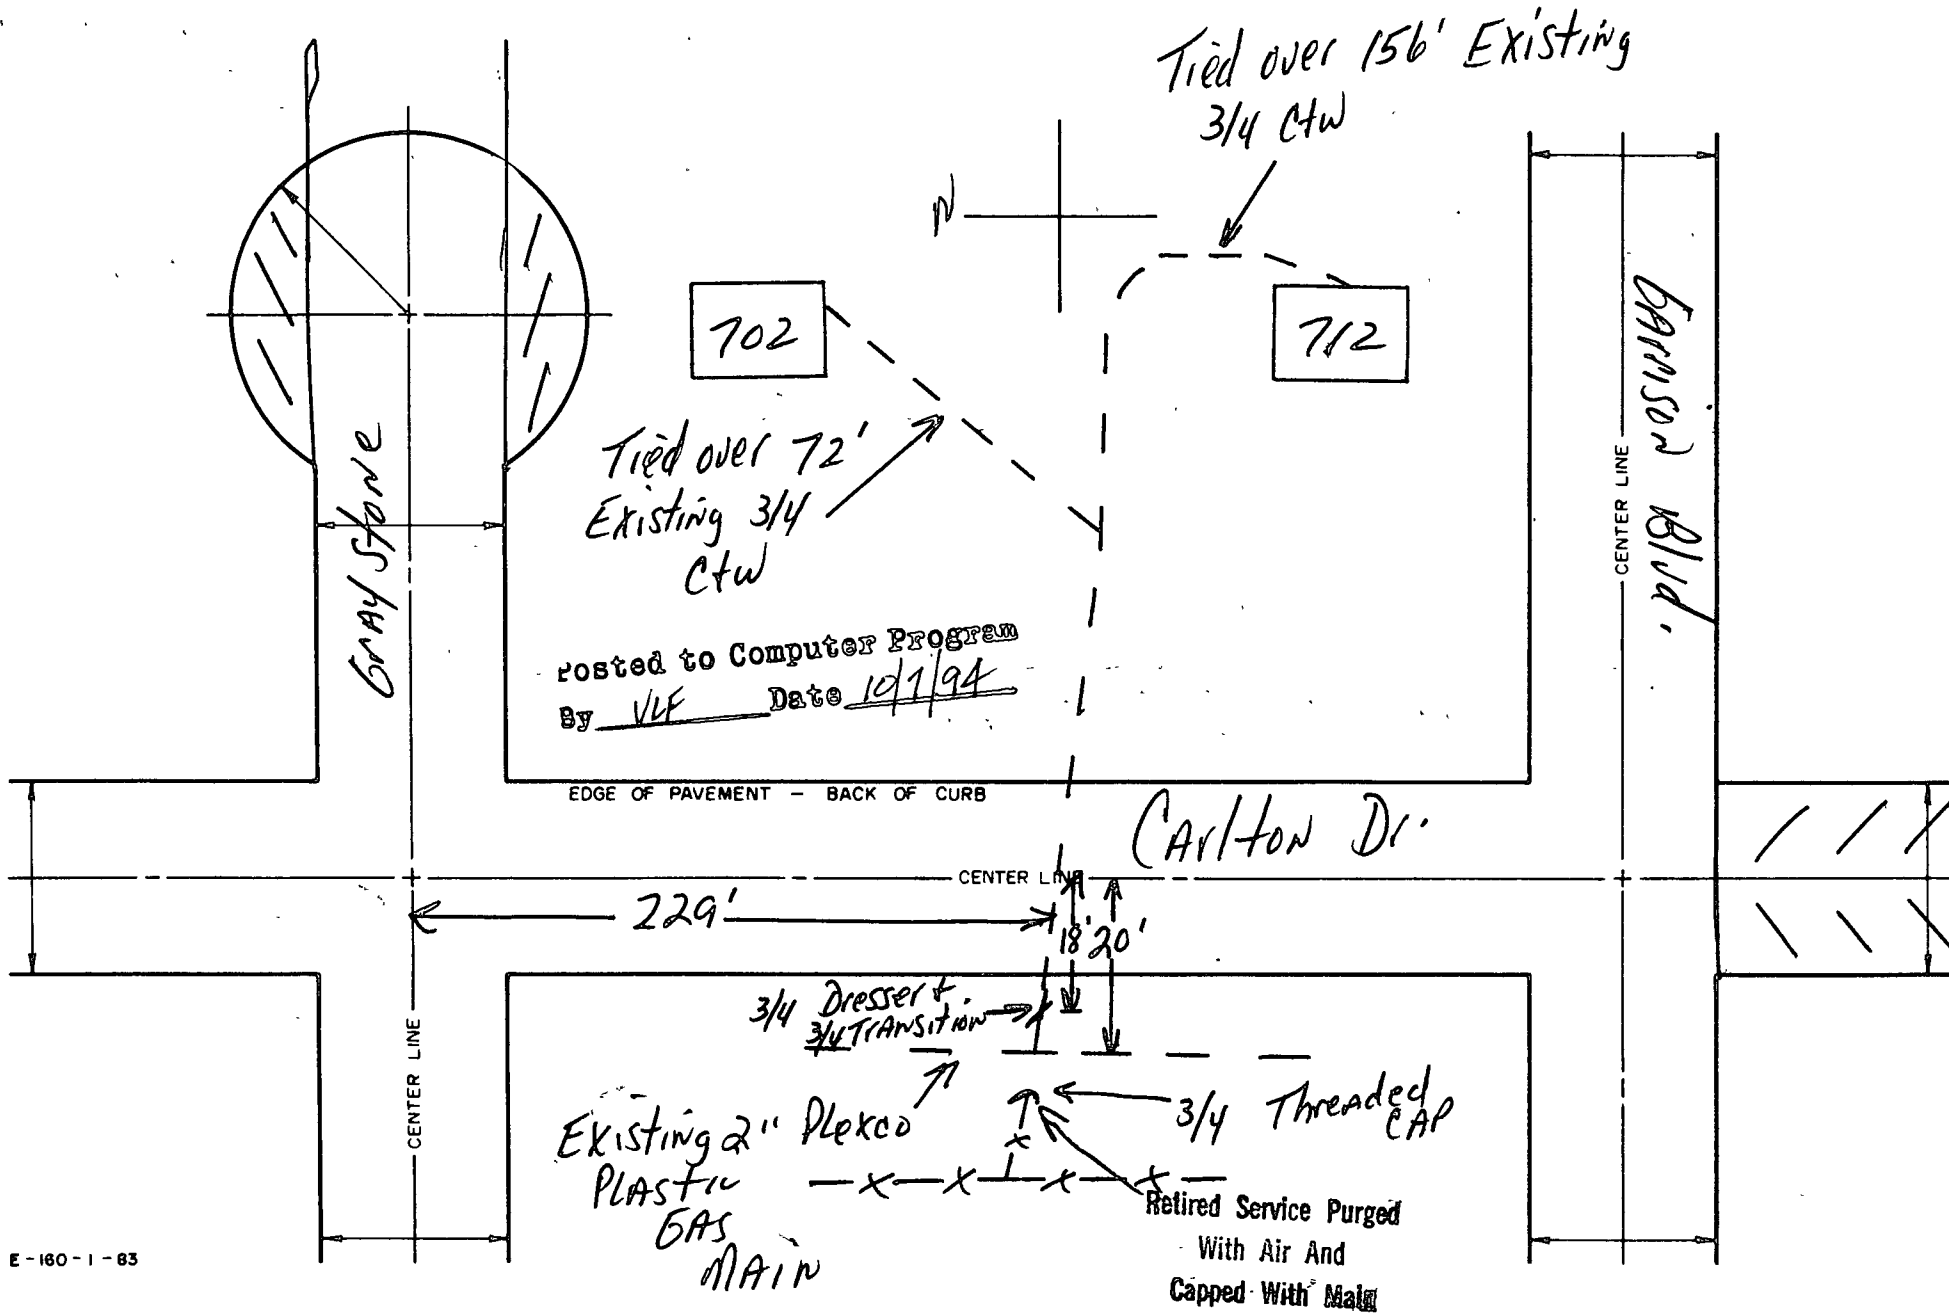 Tied over 156' Existing
3/4 Ctw
N
702
712
Garrison Blvd.
Tied over 72'
Existing 3/4
Ctw
Gray Stone
CENTER LINE
Posted to Computer Program
By VLF Date 10/7/94
EDGE OF PAVEMENT - BACK OF CURB
Carlton Dr.
CENTER LINE
229'
18' 20'
3/4 Dresser +
3/4 Transition
CENTER LINE
Existing 2" Plexco
Plastic
Gas
Main
3/4 Threaded
CAP
Retired Service Purged
With Air And
Capped With Main
E-160-1-83